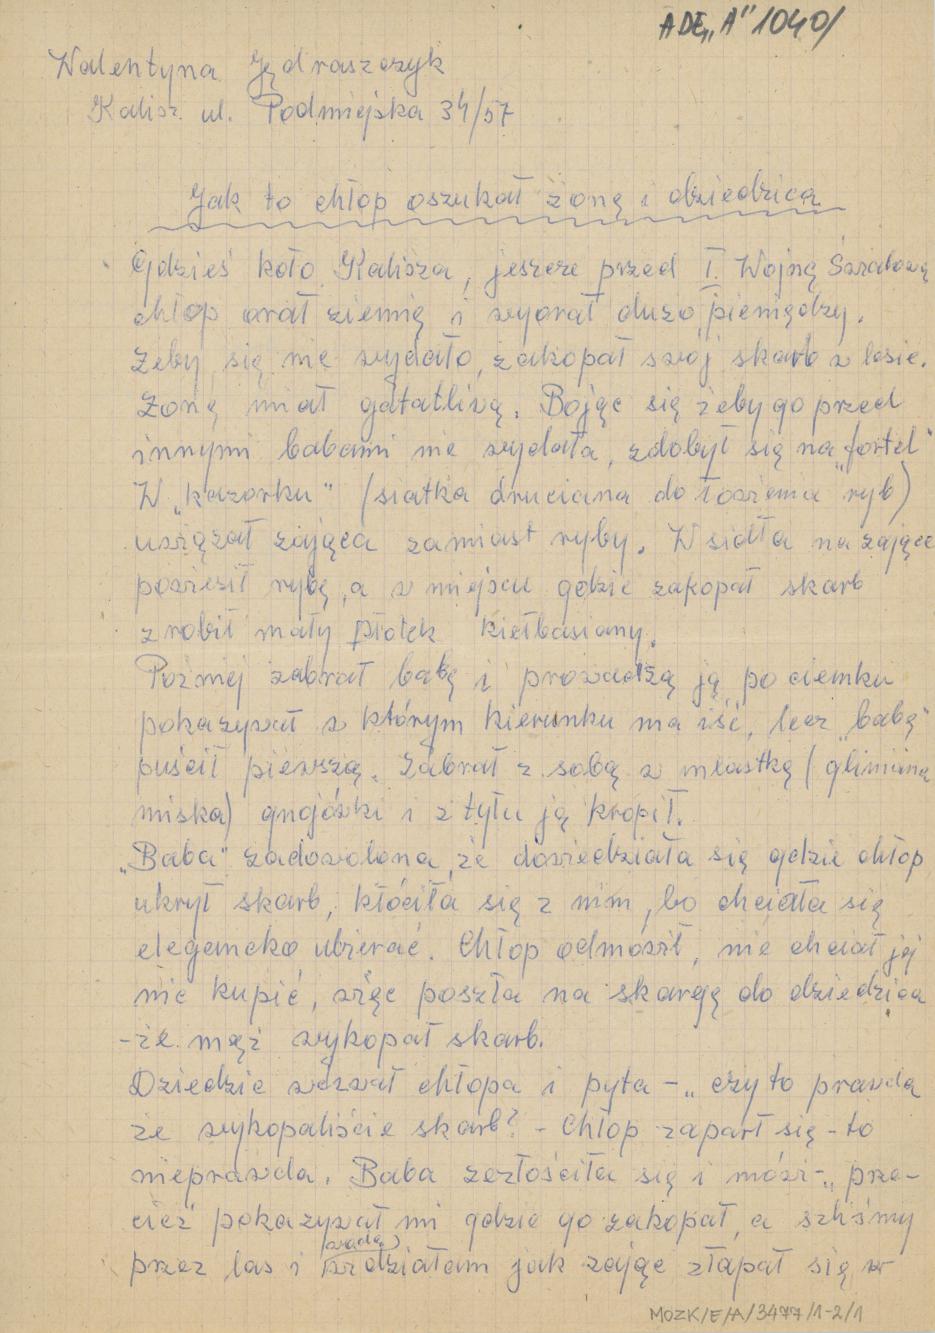 ADE„A" 1040/
Walentyna Jędraszczyk
Kalisz ul. Podmiejska 34/57
Jak to chłop oszukał żonę i dziedzica
Gdzieś koło Kalisza, jeszcze przed I. Wojną Światową
chłop orał ziemię i wyorał dużo pieniędzy.
Żeby się nie wydało, zakopał swój skarb w lesie.
Żonę miał gatatliwą. Bojąc się żeby go przed
innymi babami nie wydała, zdobył się na „fortel"
W „kazorku" (siatka druciana do łowienia ryb)
uwiązał zająca zamiast ryby. W sidła na zające
powiesił rybę, a w miejscu gdzie zakopał skarb
zrobił mały płotek kiełbasiany.
Poźniej zabrał babę i prowadzą ją po ciemku
pokazywał w którym kierunku ma iść, lecz „babę"
puścił pierwszą. Zabrał z sobą w mlastkę (gliniana
miska) gnojówki i z tyłu ją kropił.
„Baba" zadowolona, że dowiedziała się gdzie chłop
ukrył skarb, kłóciła się z nim, bo chciała się
elegancko ubierać. Chłop odmówił, nie chciał jej
nic kupić, więc poszła na skargę do dziedzica
- że mąż wykopał skarb.
Dziedzic wezwał chłopa i pyta - „czy to prawda
że wykopaliście skarb? - Chłop zaparł się - to
nieprawda. Baba zezłościła się i mówi - „prze-
cież pokazywał mi gdzie go zakopał, a szliśmy
przez las i widziałam jak zając złapał się w
MOZK/E/A/3477/1-2/1